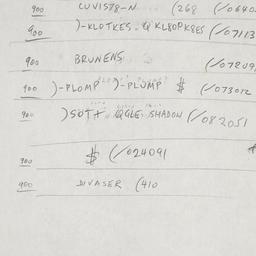 900 LUVIS78-N (268 (/0640
900 )-KLOTKES- & KL80PK8ES (/07113
900 BRUNENS (/07209
900 )-PLOMP )-PLUMP $ (/073012
900 )SOTT QGLE SHADOW (/082051
900 $ (/024091
900 DIVASER (410